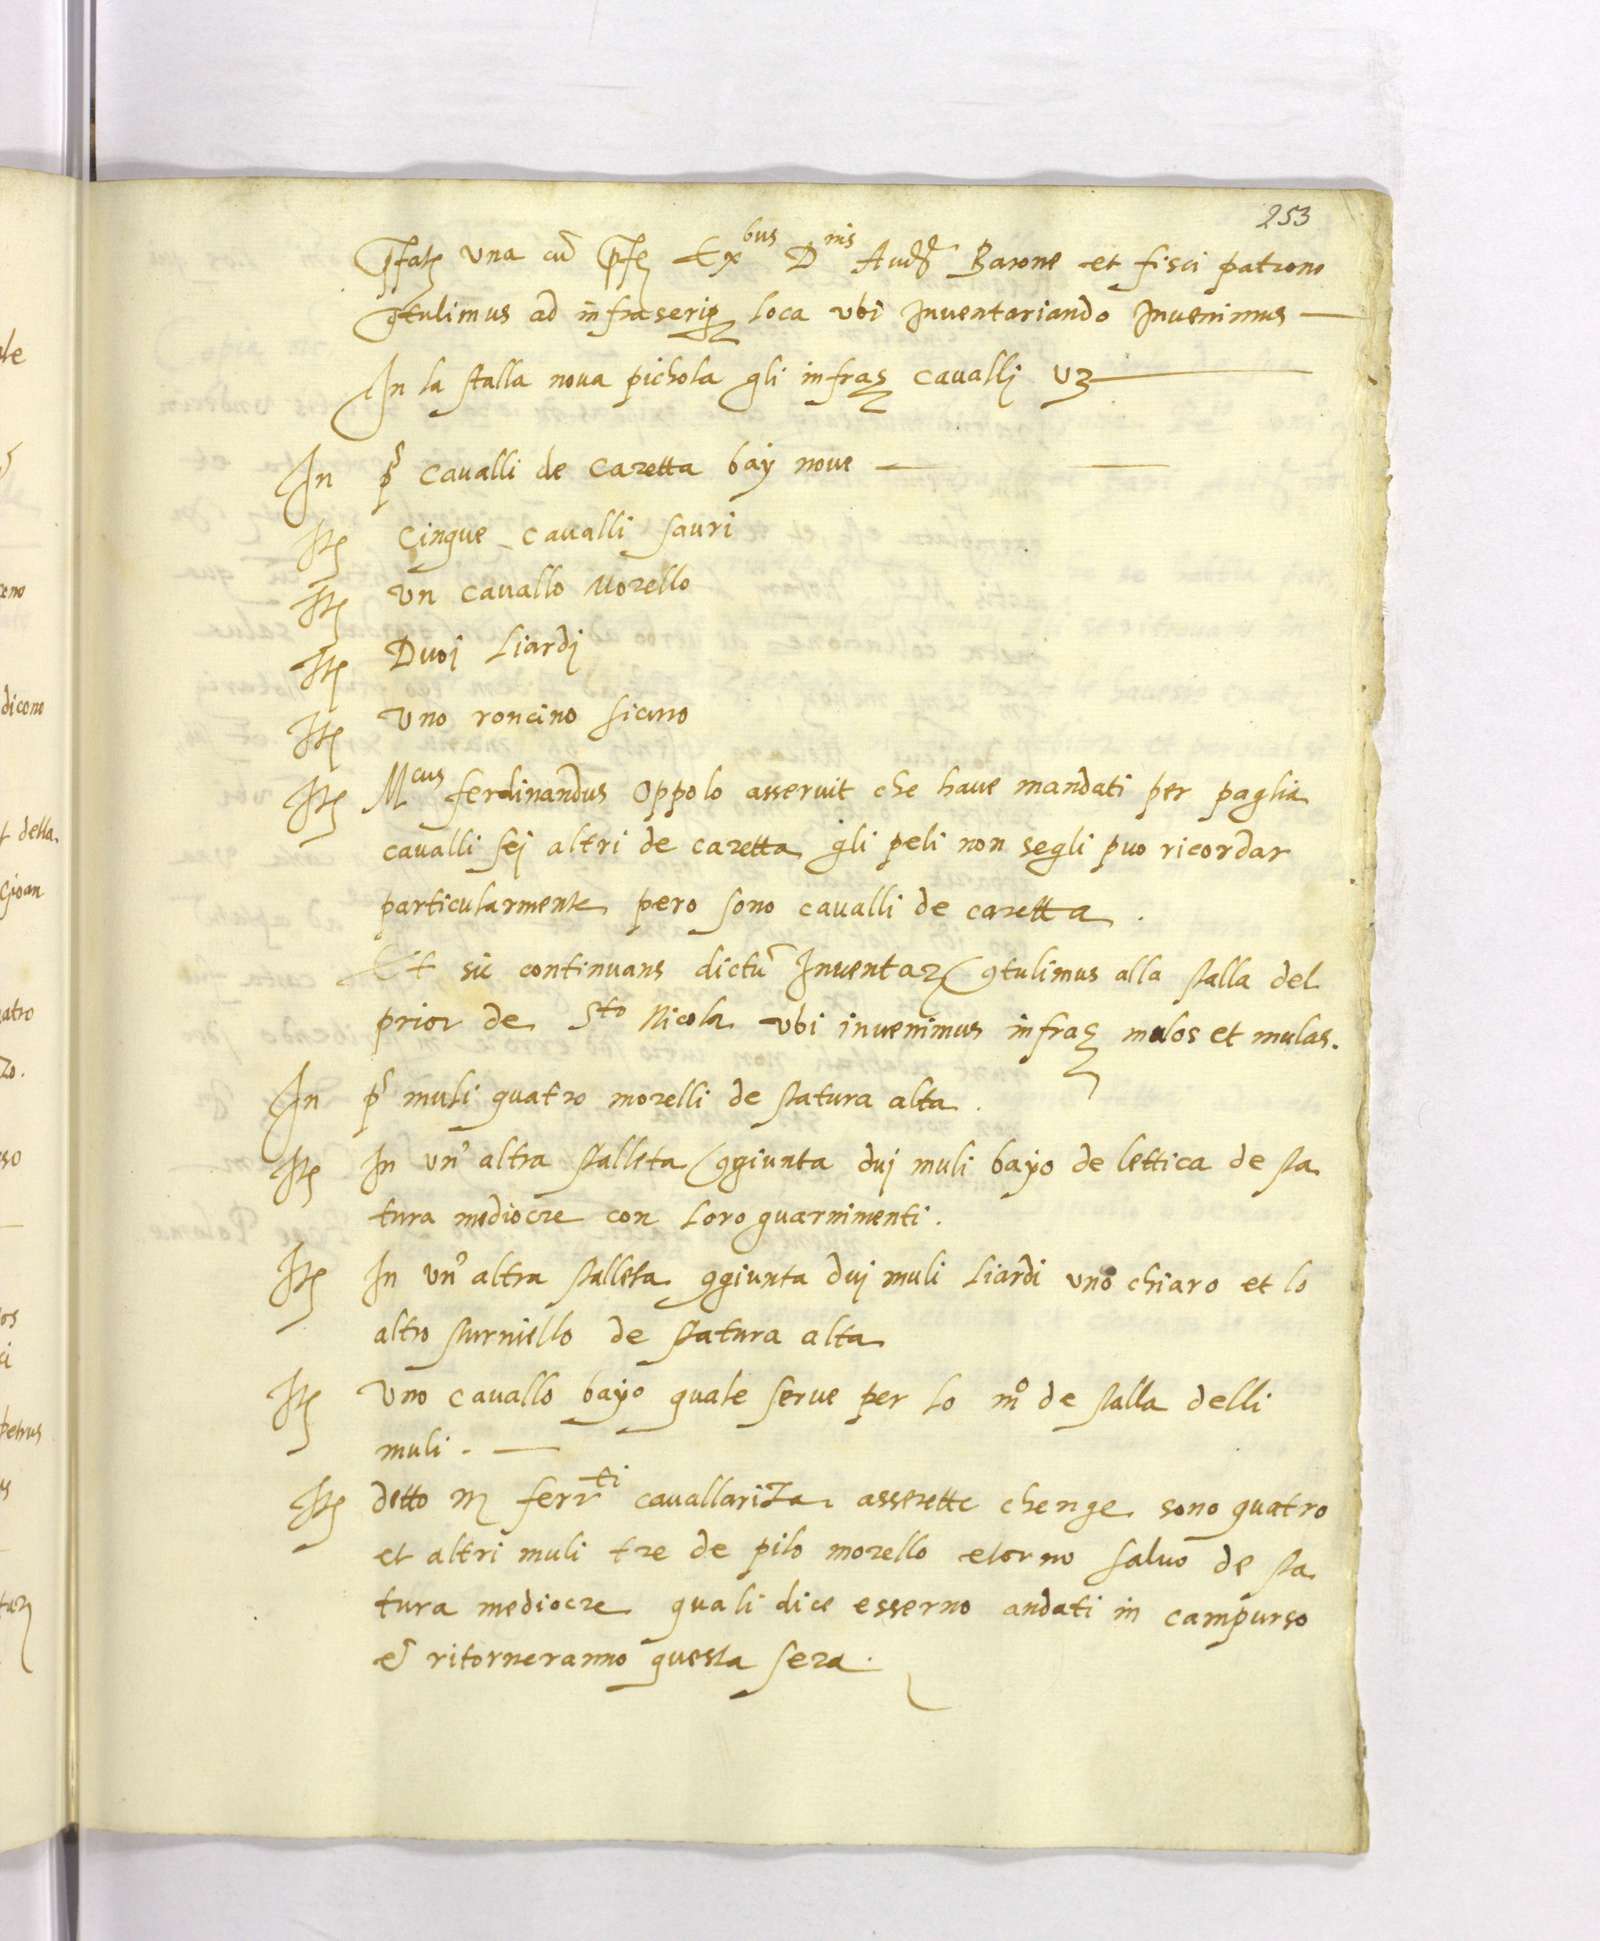 253
una cu Ex^bus D^nis Aud Barone et fisci patrono
ad infrascrip loca ubi Inventariando Invenimus
In la stalla nova pichola gli infras cavallj vz
In p cavalli de caretta bay nove
Ite cinque cavalli sauri
Ite un cavallo Morello
Ite Duoj Liardj
Ite Uno roncino
Ite M^cus ferdinandus Oppolo asseruit che have mandati per paglia
cavalli sej altri de caretta gli peli non segli puo ricordar
particularmente pero sono cavalli de caretta.
Et sic continuans dictu Inventar 9tulimus alla stalla del
prior de S^to Nicola ubi invenimus infras mulos et mulas.
In p muli quatro morelli de statura alta.
Ite In un' altra stalleta 9giunta duj muli bayo de lettica de sta
tura mediocre con loro guarnimenti.
Ite In un' altra stalleta 9giunta duj muli Liardi uno chiaro et lo
altro sturniello de statura alta
Ite Uno cavallo bayo quale serve per lo m^o de stalla delli
muli.
Ite detto M ferr^ti cavallariza asserette chenge sono quatro
et altri muli tre de pilo morello de sta
tura mediocre quali dice esserno andati in campurso
et ritorneranno questa sera.
le
dicono
della
Gioan
petrus